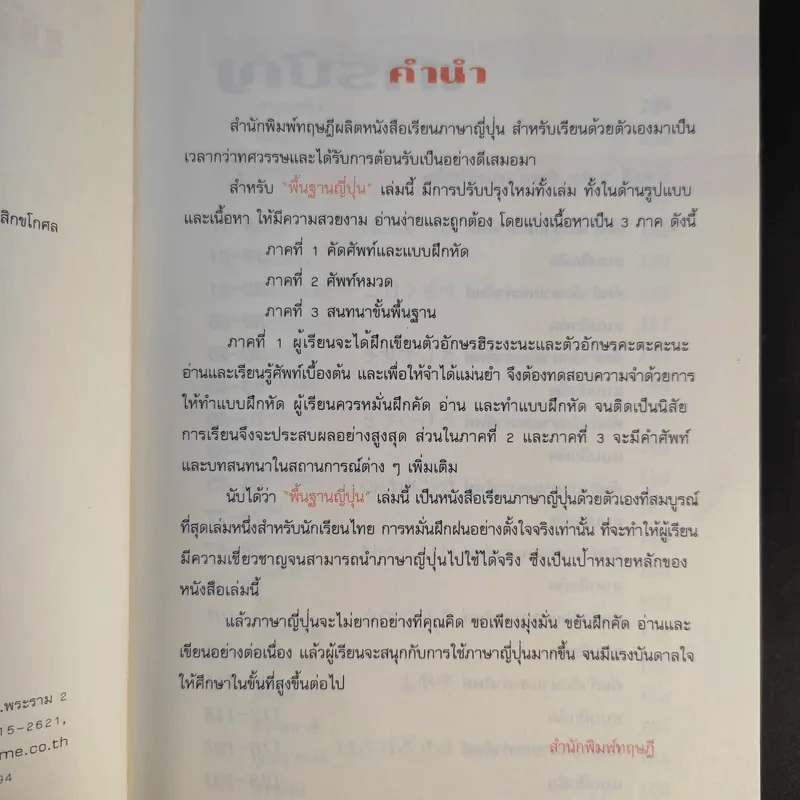 คำนำ
สำนักพิมพ์ทฤษฎีผลิตหนังสือเรียนภาษาญี่ปุ่น สำหรับเรียนด้วยตัวเองมาเป็น
เวลากว่าทศวรรษและได้รับการต้อนรับเป็นอย่างดีเสมอมา
สำหรับ "พื้นฐานญี่ปุ่น" เล่มนี้ มีการปรับปรุงใหม่ทั้งเล่ม ทั้งในด้านรูปแบบ
และเนื้อหา ให้มีความสวยงาม อ่านง่ายและถูกต้อง โดยแบ่งเนื้อหาเป็น 3 ภาค ดังนี้
ภาคที่ 1 คัดศัพท์และแบบฝึกหัด
ภาคที่ 2 ศัพท์หมวด
ภาคที่ 3 สนทนาขั้นพื้นฐาน
ภาคที่ 1 ผู้เรียนจะได้ฝึกเขียนตัวอักษรฮิระงะนะและตัวอักษรคะตะคะนะ
อ่านและเรียนรู้ศัพท์เบื้องต้น และเพื่อให้จำได้แม่นยำ จึงต้องทดสอบความจำด้วยการ
ให้ทำแบบฝึกหัด ผู้เรียนควรหมั่นฝึกคัด อ่าน และทำแบบฝึกหัด จนติดเป็นนิสัย
การเรียนจึงจะประสบผลอย่างสูงสุด ส่วนในภาคที่ 2 และภาคที่ 3 จะมีคำศัพท์
และบทสนทนาในสถานการณ์ต่าง ๆ เพิ่มเติม
นับได้ว่า "พื้นฐานญี่ปุ่น" เล่มนี้ เป็นหนังสือเรียนภาษาญี่ปุ่นด้วยตัวเองที่สมบูรณ์
ที่สุดเล่มหนึ่งสำหรับนักเรียนไทย การหมั่นฝึกฝนอย่างตั้งใจจริงเท่านั้น ที่จะทำให้ผู้เรียน
มีความเชี่ยวชาญจนสามารถนำภาษาญี่ปุ่นไปใช้ได้จริง ซึ่งเป็นเป้าหมายหลักของ
หนังสือเล่มนี้
แล้วภาษาญี่ปุ่นจะไม่ยากอย่างที่คุณคิด ขอเพียงมุ่งมั่น ขยันฝึกคัด อ่านและ
เขียนอย่างต่อเนื่อง แล้วผู้เรียนจะสนุกกับการใช้ภาษาญี่ปุ่นมากขึ้น จนมีแรงบันดาลใจ
ให้ศึกษาในขั้นที่สูงขึ้นต่อไป
สำนักพิมพ์ทฤษฎี
สิกขโกศล
.พระราม 2
15-2621,
me.co.th
94